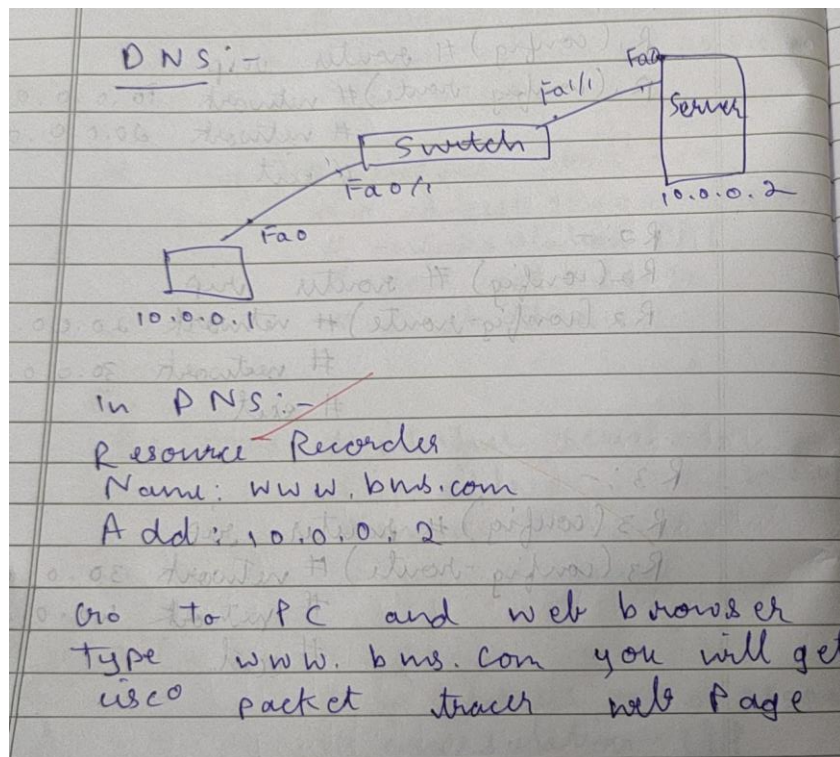 DNS:-
Fa0
Fa1/1
Server
Switch
Fa0/1
10.0.0.2
Fa0
10.0.0.1
in DNS:-
Resource Recorder
Name: www.bms.com
Add: 10.0.0.2
Go to PC and web browser
type www.bms.com you will get
cisco packet tracer web Page